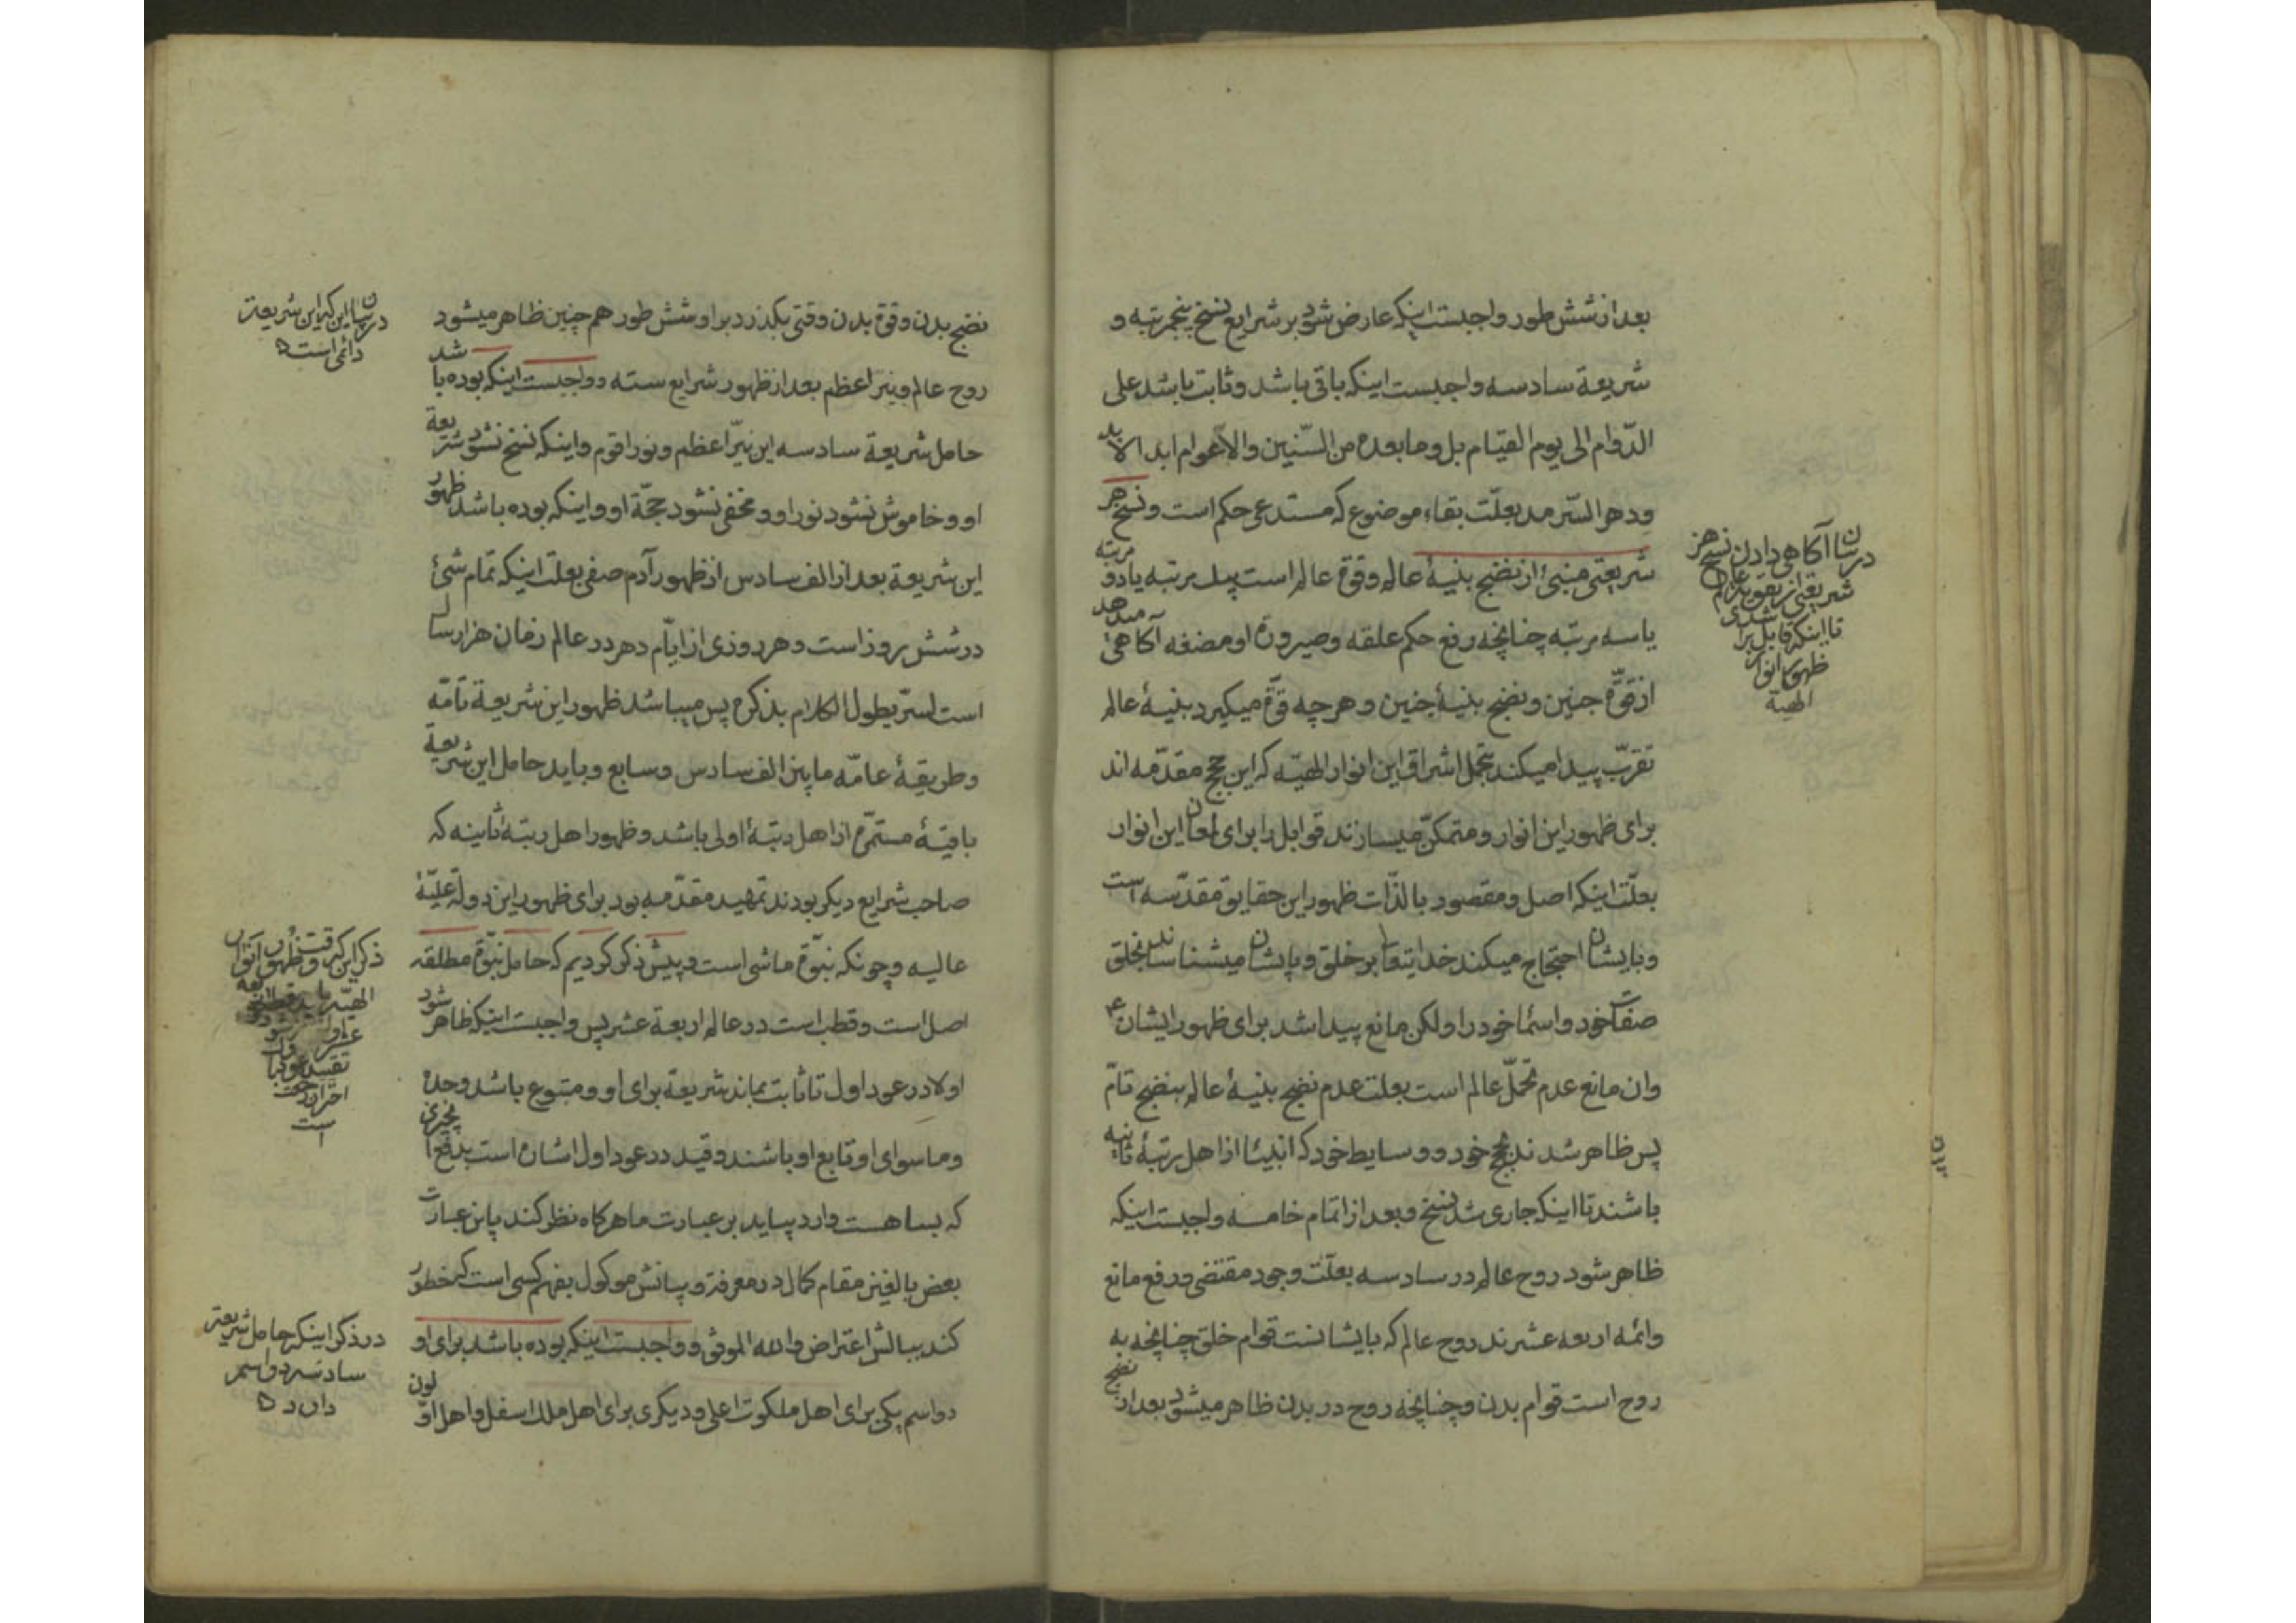 بعد از شش طور واجبست اینکه عارض شود بر شرایع نسخ پنجمرتبه و
شریعة سادسه واجبست اینکه باقی باشد و ثابت باشد علی
الدّوام الی یوم القیام بل و ما بعده من السّنین والاعوام ابد الابد
و دهر السّرمد بعلّت بقاء موضوع که مستدعی حکم است و نسخ هر
شریعتی منبئ از نضج بنیهٔ عالم و قوة عالم است بیک مرتبه یا دو مرتبه
یا سه مرتبه چنانچه رفع حکم علقه و صیرورة او مضغه آکاهی میدهد
از قوّة جنین و نضج بنیهٔ جنین و هر چه قوّة میکیرد بنیهٔ عالم
تقرّب پیدا میکند بتحمل اشراق این انوار الهیّه که این حجج مقدّمه اند
برای ظهور این انوار و متمکنّ میسازند قوابل را برای لمعان این انوار
بعلّت اینکه اصل و مقصود بالذّات ظهور این حقایق مقدّسه است
و بایشان احتجاج میکند خدایتعا بر خلق و بایشان میشناساند بخلق
صفات خود و اسماء خود را ولکن مانع پیدا شد برای ظهور ایشان ع
و ان مانع عدم تحمّل عالم است بعلت عدم نضج بنیهٔ عالم بنضج تامّ
پس ظاهر شدند حجج خود و وسایط خود که انبیا از اهل رتبهٔ ثانیه
باشند تا اینکه جاری شد نسخ و بعد از اتمام خامسه واجبست اینکه
ظاهر شود روح عالم در سادسه بعلّت وجود مقتضی و رفع مانع
وائمه اربعه عشرند روح عالم که بایشانست قوام خلق چنانچه به
روح است قوام بدن و چنانچه روح در بدن ظاهر میشود بعد از نضج
در بیان آکاهی دادن نسخ هر
شریعتی از
تا اینکه قابل شدی برای
ظهور انوار
الهیّه
نضج بدن و قوة بدن وقتی بکذرد بر او شش طور هم چنین ظاهر میشود
روح عالم و نیّر اعظم بعد از ظهور شرایع سته و واجبست اینکه بوده باشد
حامل شریعة سادسه این نیّر اعظم و نور اقوم و اینکه نسخ نشود شریعة
او و خاموش نشود نور او و مخفی نشود حجّة او و اینکه بوده باشد ظهور
این شریعة بعد از الف سادس از ظهور آدم صفی بعلت اینکه تمام شئ
در شش روز است و هر روزی از ایّام دهر در عالم زمان هزار سال
است لسرّ یطول الکلام بذکره پس میباشد ظهور این شریعة تامّه
و طریقهٔ عامّه مابین الف سادس و سابع و باید حامل این شریعة
باقیهٔ مستمرّه از اهل رتبهٔ اولی باشد و ظهور اهل رتبهٔ ثانیه که
صاحب شرایع دیکر بودند تمهید مقدّمه بود برای ظهور این دولة علیّهٔ
عالیه و چونکه نبوّة ماشی است و پیش ذکر کردیم که حامل نبوّة مطلقه
اصل است و قطب است در عالم اربعة عشر پس واجبست اینکه ظاهر شود
اولا در عود اول تا ثابت بماند شریعة برای او و متبوع باشد وحده
و ماسوای او تابع او باشند و قید در عود اول اشان است بدفع
که بسا هست وارد بیاید بر عبارت ما هرکاه نظر کند باین عبارت
بعض بالغین مقام کمال در معرفة و بیانش موکول بفهم کسی است که خطور
کند ببالش اعتراض والله الموفق و واجبست اینکه بوده باشد برای او
دو اسم یکی برای اهل ملکوت اعلی و دیکری برای اهل ملک اسفل و اهل اوّلون
در بیان اینکه این شریعة
دائمی است
ذکر این که وقت ظهور انوار
الهیّه
احتراز
است
در ذکر اینکه حامل شریعة
سادسه دو اسم
دارد